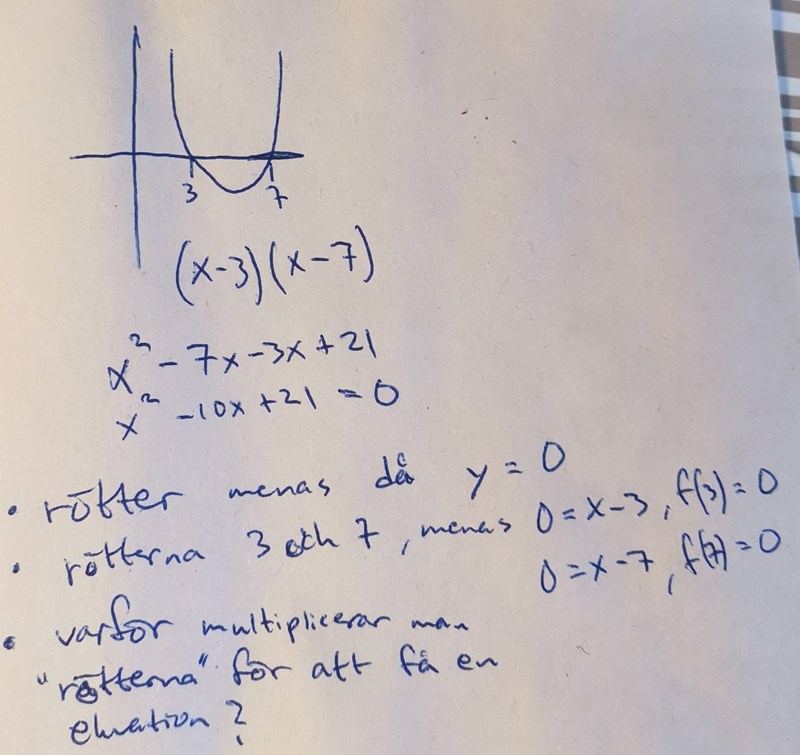 3 7
(x-3)(x-7)
x² - 7x - 3x + 21
x² - 10x + 21 = 0
• rötter menas då y = 0
• rötterna 3 och 7, menas 0 = x - 3, f(3) = 0
0 = x - 7, f(7) = 0
• varför multiplicerar man
"rötterna" för att få en
ekvation?